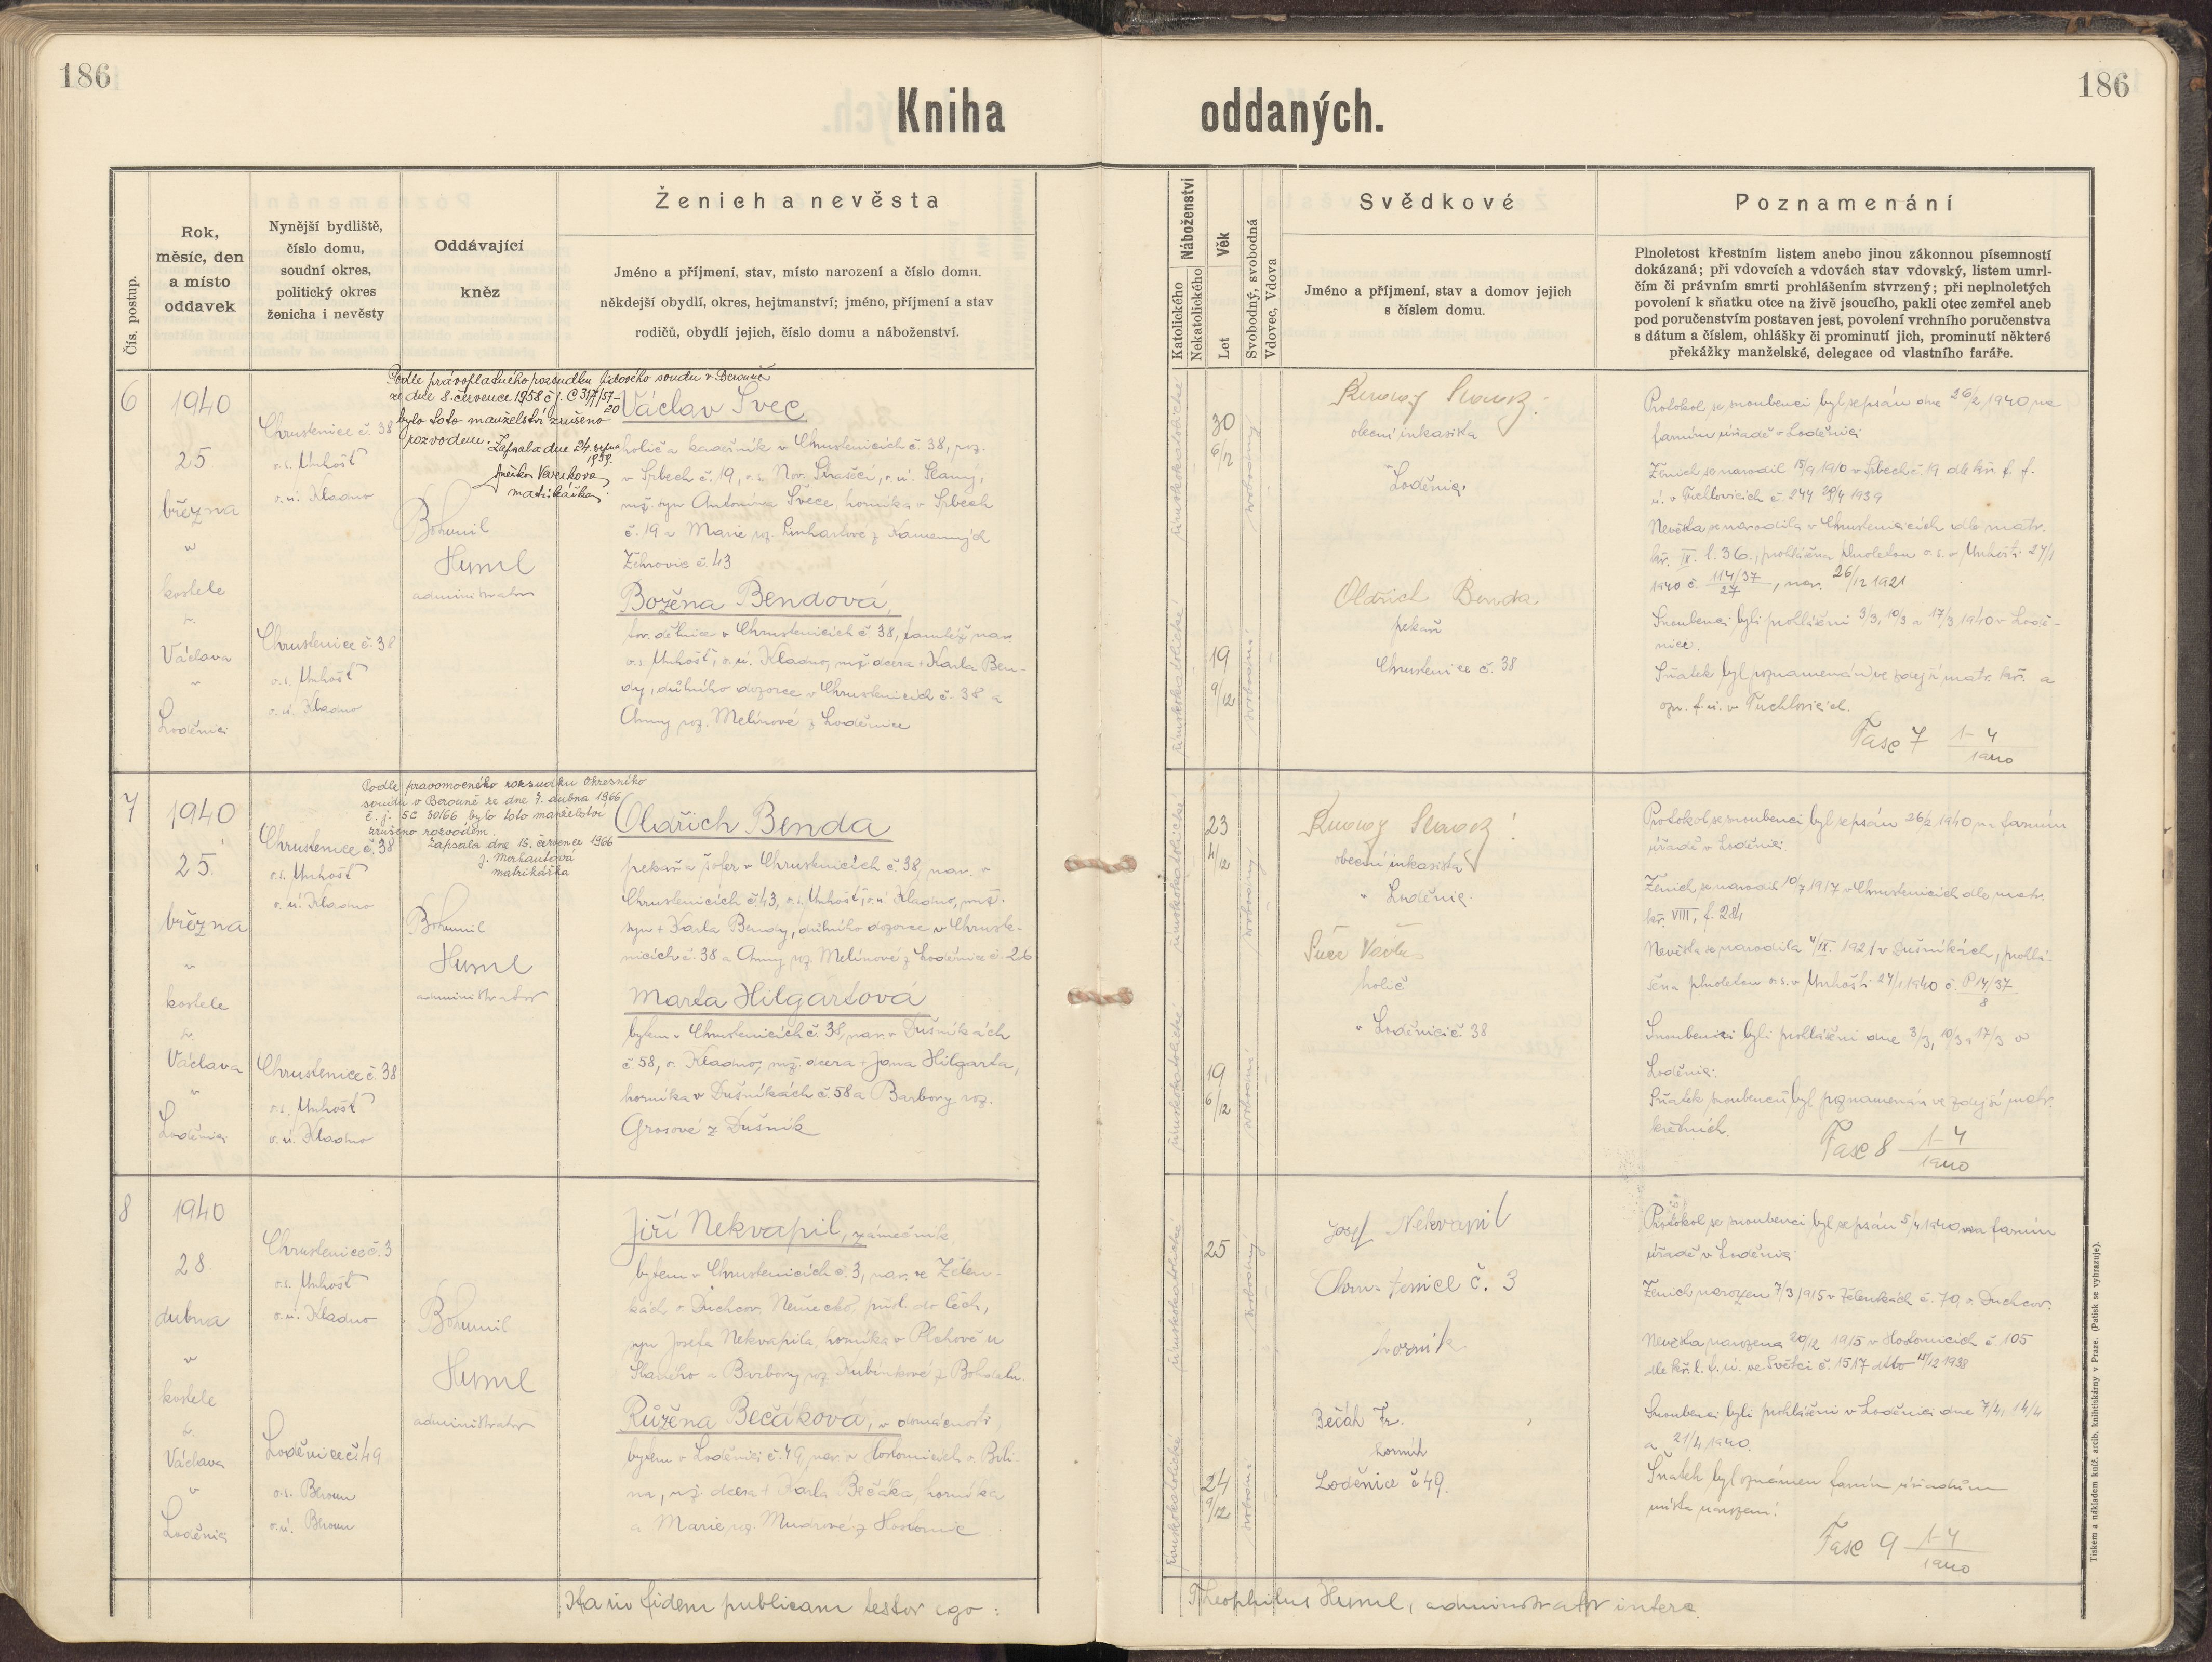 186
186
Kniha
oddaných.
Čís. postup.
Rok,
měsíc, den
a místo
oddavek
Nynější bydliště,
číslo domu,
soudní okres,
politický okres
ženicha i nevěsty
Oddávající
kněz
Ženich a nevěsta
Jméno a příjmení, stav, místo narození a číslo domu.
někdejší obydlí, okres, hejtmanství; jméno, příjmení a stav
rodičů, obydlí jejich, číslo domu a náboženství.
Náboženství
Katolického
Nekatolického
Věk
Let
Svobodný, svobodná
Vdovec, Vdova
Svědkové
Jméno a příjmení, stav a domov jejich
s číslem domu.
Poznamenání
Plnoletost křestním listem anebo jinou zákonnou písemností
dokázaná; při vdovcích a vdovách stav vdovský, listem umrl-
čím či právním smrti prohlášením stvrzený; při neplnoletých
povolení k sňatku otce na živě jsoucího, pakli otec zemřel aneb
pod poručenstvím postaven jest, povolení vrchního poručenstva
s dátum a číslem, ohlášky či prominutí jich, prominutí některé
překážky manželské, delegace od vlastního faráře.
6
1940
25
března
v
kostele
sv.
Václava
v
Loděnici
Chrustenice č. 38
o.s. Unhošť
o.ú. Kladno
Chrustenice č. 38
o.s. Unhošť
o.ú. Kladno
Podle právoplatného rozsudku lidového soudu v Berouně
ze dne 8. července 1958 č. j. C 317/57-
20
bylo toto manželství zrušeno
rozvodem.
Zapsala dne 24. srpna
1959.
Anežka Vaverková
matrikářka.
Bohumil
Huml
administrator
Václav Švec
holič a kadeřník v Chrustenicích č. 38, roz.
v Srbech č. 19, o.s. Nov. Strašecí, o.ú. Slaný,
mž. syn Antonína Švece, horníka v Srbech
č. 19 a Marie roz. Linhartové z Kamenných
Žehrovic č. 43
Božena Bendová,
tov. dělnice v Chrustenicích č. 38, tamtéž nar.
o.s. Unhošť, o.ú. Kladno, mž. dcera + Karla Ben-
dy, důlního dozorce v Chrustenicích č. 38 a
Anny roz. Melínové z Loděnice
římskokatolické
římskokatolické
30
6/12
19
9/12
svobodný
svobodná
obecní inkasista
Loděnice
Oldřich Benda
pekař
Chrustenice č. 38
Protokol se snoubenci byl sepsán dne 26/2 1940 na
farním úřadě v Loděnici
Ženich se narodil 15/9 1910 v Srbech č. 19 dle kř. l. f.
ú. v Tuchlovicích č. 244 29/4 1939
Nevěsta se narodila v Chrustenicích dle matr.
kř. IX. l. 36., prohlášena plnoletou o.s. v Unhošti 24/1
1940 č. 114/37 27, nar. 26/12 1921
Snoubenci byli prohlášeni 3/3, 10/3 a 17/3 1940 v Lodě-
nice.
Sňatek byl poznamenán ve zdejší matr. kř. a
ozn. f. ú. v Tuchlovicích.
Fasc 7 1-4
1940
7
1940
25.
března
v
kostele
sv.
Václava
v
Loděnici
Chrustenice č. 38
o.s. Unhošť
o.ú. Kladno
Chrustenice č. 38
o.s. Unhošť
o.ú. Kladno
Podle pravomocného rozsudku Okresního
soudu v Berouně ze dne 7. dubna 1966
č. j. 5C 30/66 bylo toto manželství
zrušeno rozvodem.
Zapsala dne 15. července 1966
J. Merhautová
matrikářka
Bohumil
Huml
administrator
Oldřich Benda
pekař a šofer v Chrustenicích č. 38, nar. v
Chrustenicích č. 43, o.s. Unhošť, o.ú. Kladno, mž.
syn + Karla Bendy, důlního dozorce v Chruste-
nicích č. 38 a Anny roz. Melínové z Loděnice č. 26
Marta Hilgartová
bytem v Chrustenicích č. 38, nar. v Dušníkách
č. 58, o. Kladno, mž. dcera + Jana Hilgarta,
horníka v Dušníkách č. 58 a Barbory, roz.
Grosové z Dušník
římskokatolické
římskokatolické
23
4/12
19
6/12
svobodný
svobodná
obecní inkasista
v Loděnici
holič
v Loděnici č. 38
Protokol se snoubenci byl sepsán 26/2 1940 na farním
úřadě v Loděnici
Ženich se narodil 10/7 1917 v Chrustenicích dle matr.
kř. VIII, f. 284
Nevěsta se narodila 4/IX. 1921 v Dušníkách, prohlá-
šena plnoletou o.s. v Unhošti 24/1 1940 č. P 14/37
8
Snoubenci byli prohlášeni dne 3/3, 10/3 a 17/3 v
Loděnici.
Sňatek snoubenců byl poznamenán ve zdejší matr.
křestních.
Fasc 8 1-4
1940
8
1940
28.
dubna
v
kostele
sv.
Václava
v
Loděnici
Chrustenice č. 3
o.s. Unhošť
o.ú. Kladno
Loděnice č. 49
o.s. Beroun
o.ú. Beroun
Bohumil
Huml
administrator
Jiří Nekvapil, zámečník,
bytem v Chrustenicích č. 3, nar. ve Želen-
kách o. Duchcov, Německo, přísl. do Čech,
syn Josefa Nekvapila, horníka v Plchově u
Slaného a Barbory roz.
Růžena Bečáková, v domácnosti
bytem v Loděnici č. 49, nar. v Hostomicích o. Bíli-
na, mž. dcera + Karla Bečáka, horníka
a Marie roz. Mudrové z Hostomic
římskokatolické
římskokatolické
25
24
9/12
svobodný
svobodná
Josef Nekvapil
Chrustenice č. 3
horník
Bečák Fr.
horník
Loděnice č 49.
Protokol se snoubenci byl sepsán 5/4 1940 na farním
úřadě v Loděnici
Ženich narozen 7/3 1915 v Želenkách č. 70, o. Duchcov.
Nevěsta narozena 20/12 1915 v Hostomicích č. 105
dle kř. l. f. ú. ve Světci č. 1517 dtto 15/12 1938
Snoubenci byli prohlášeni v Loděnici dne 7/4, 14/4
a 21/4 1940.
Sňatek byl oznámen farním úřadům
místa narození.
Fasc 9 1-4
1940
Ita in fidem publicam testor ego:
Theophilus Huml, administrator interc.
Tiskem a nákladem kníž. arcib. knihtiskárny v Praze. (Patisk se vyhrazuje).